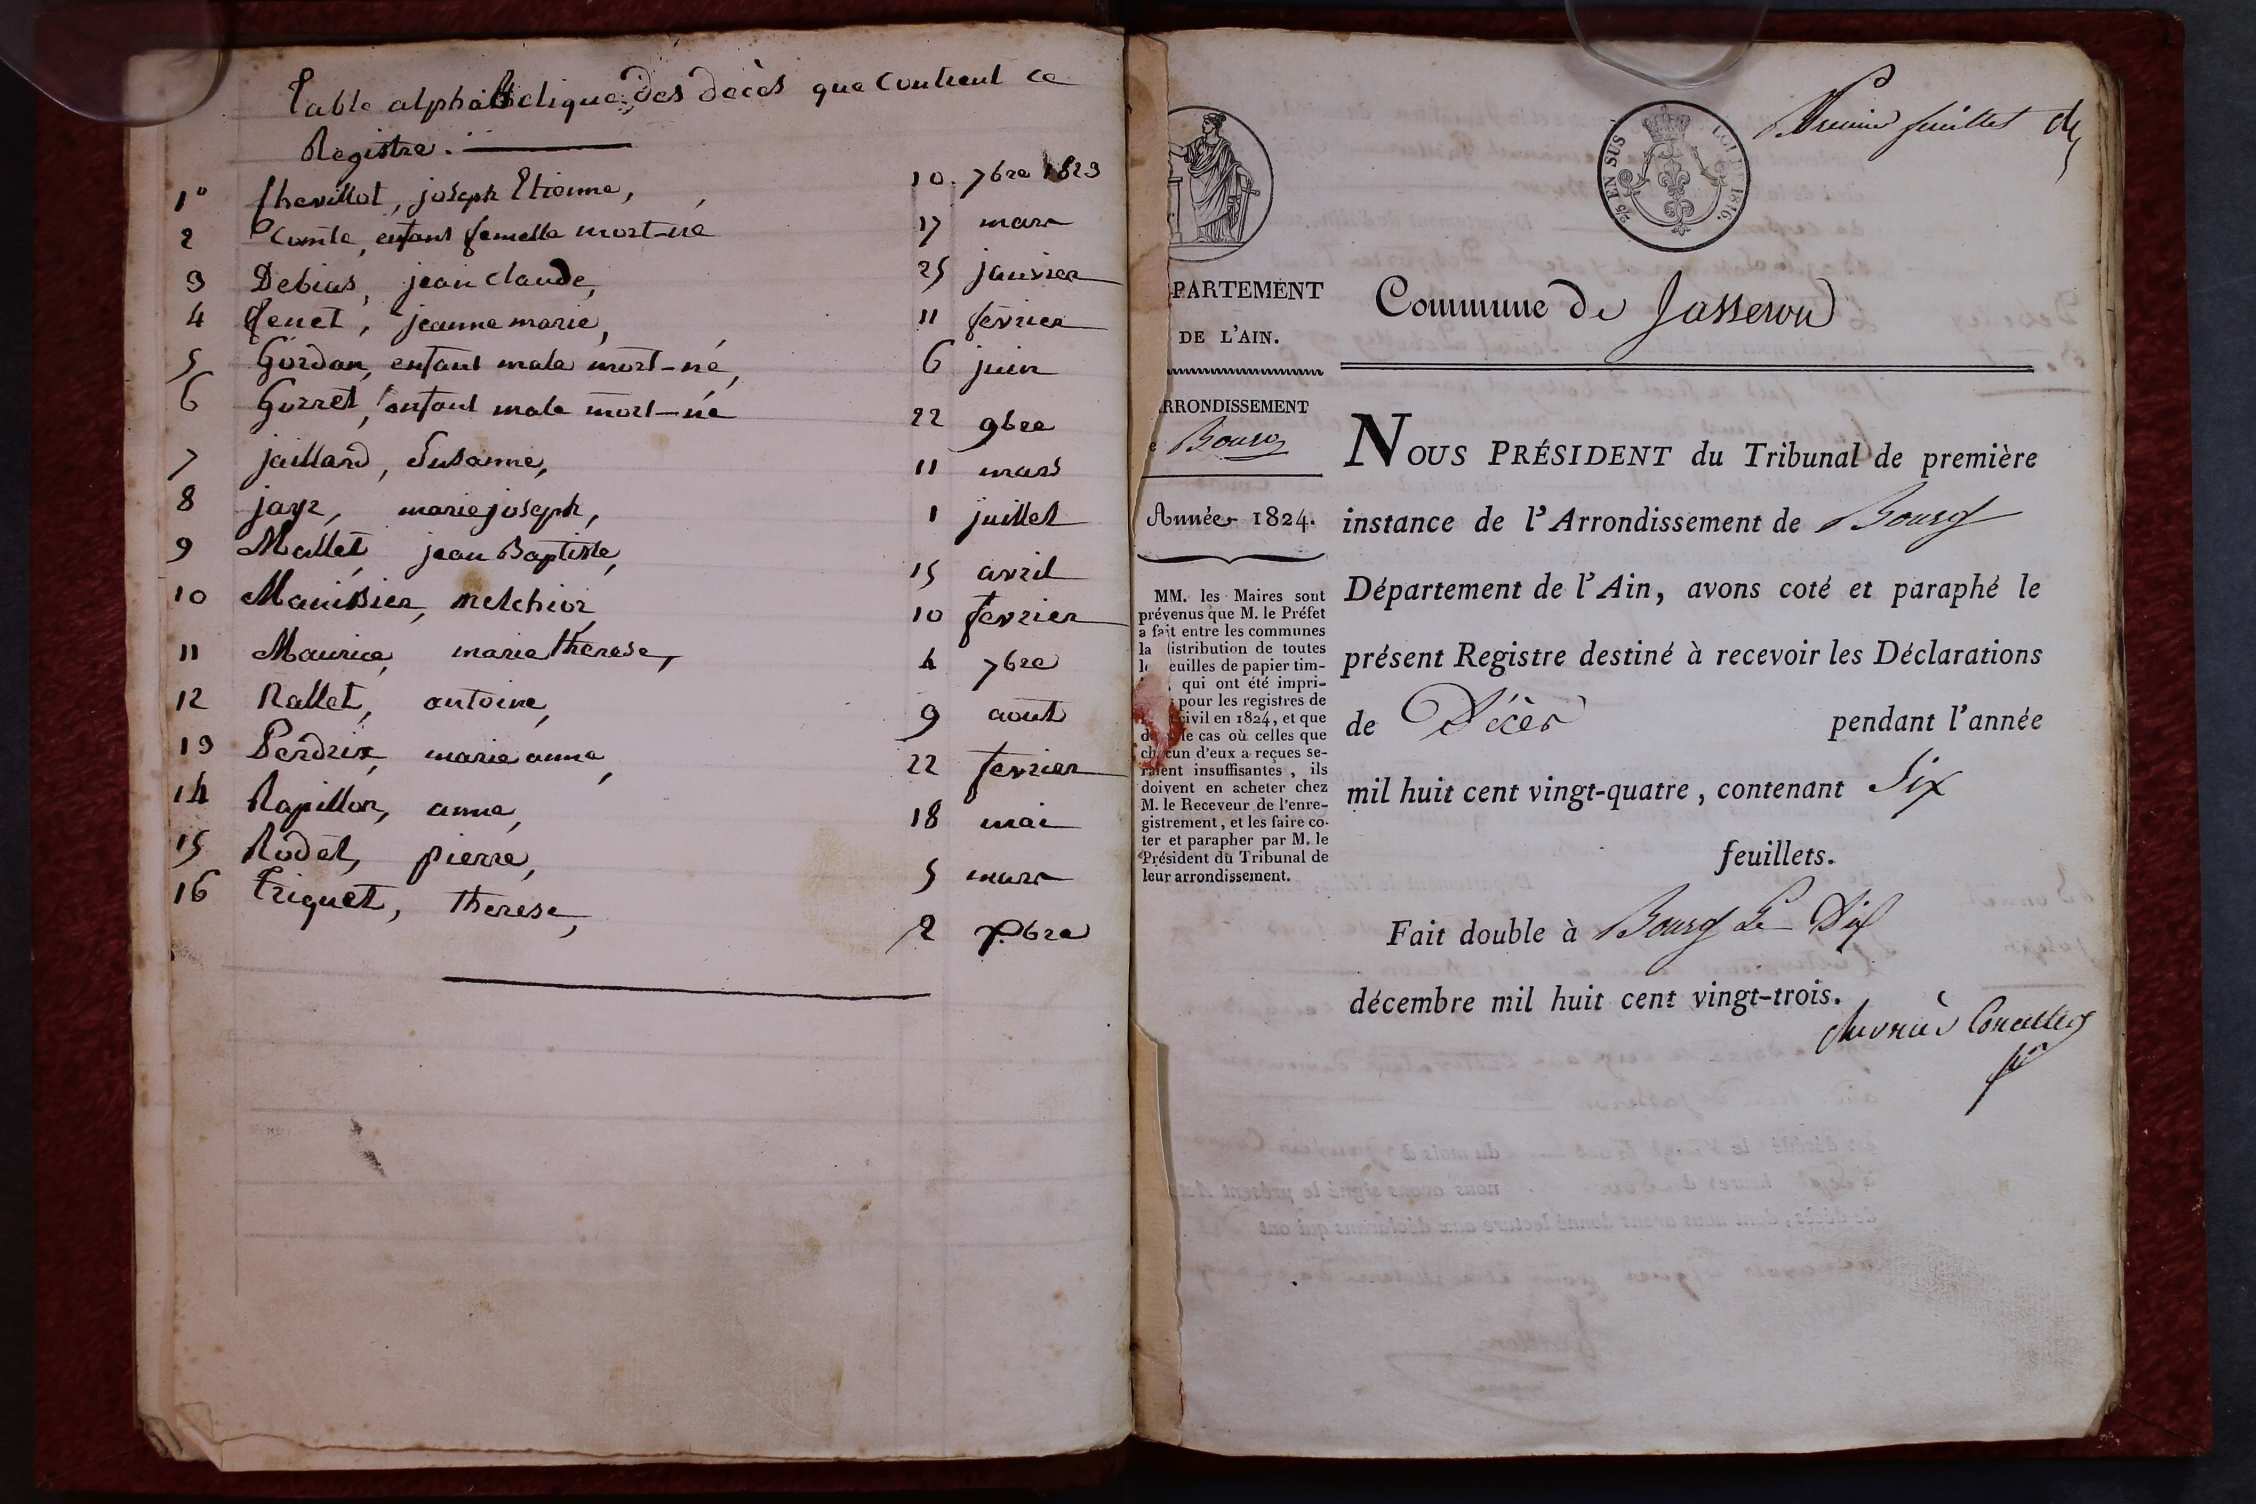 Table alphabetique des décès que contient ce
Registre.
1° Chevillot, joseph Etienne, 10. 7bre 1823
2 Comte, enfant femelle mort-né 17 mars
3 Debias, jean claude, 25 janvier
4 fenet, jeanne marie, 11 février
5 Gordon, enfant male mort-né, 6 juin
6 Gorret, enfant male mort-né 22 9bre
7 jaillard, Susanne, 11 mars
8 jayr, marie joseph, 1 juillet
9 Mallet, jean Baptiste, 15 avril
10 Manissier, melchior, 10 fevrier
11 Maurice, marie therese, 4 7bre
12 Nallet, antoine, 9 aout
13 Perdrix, marie anne, 22 fevrier
14 Rapillon, anne, 18 mai
15 Rodet, pierre, 5 mars
16 Triquet, therese, 2 Xbre
Premier feuillet
25 EN SUS
LOI DE 1816.
PARTEMENT
DE L'AIN.
Commune de Jasseron
RRONDISSEMENT
e Bourg
Année 1824.
MM. les Maires sont
prévenus que M. le Préfet
a fait entre les communes
la distribution de toutes
euilles de papier tim-
qui ont été impri-
pour les registres de
civil en 1824, et que
le cas où celles que
chacun d'eux a reçues se-
raient insuffisantes, ils
doivent en acheter chez
M. le Receveur de l'enre-
gistrement, et les faire co-
ter et parapher par M. le
Président du Tribunal de
leur arrondissement.
NOUS PRÉSIDENT du Tribunal de première
instance de l'Arrondissement de Bourg
Département de l'Ain, avons coté et paraphé le
présent Registre destiné à recevoir les Déclarations
de Décès pendant l'année
mil huit cent vingt-quatre, contenant Six
feuillets.
Fait double à Bourg Le Dix
décembre mil huit cent vingt-trois.